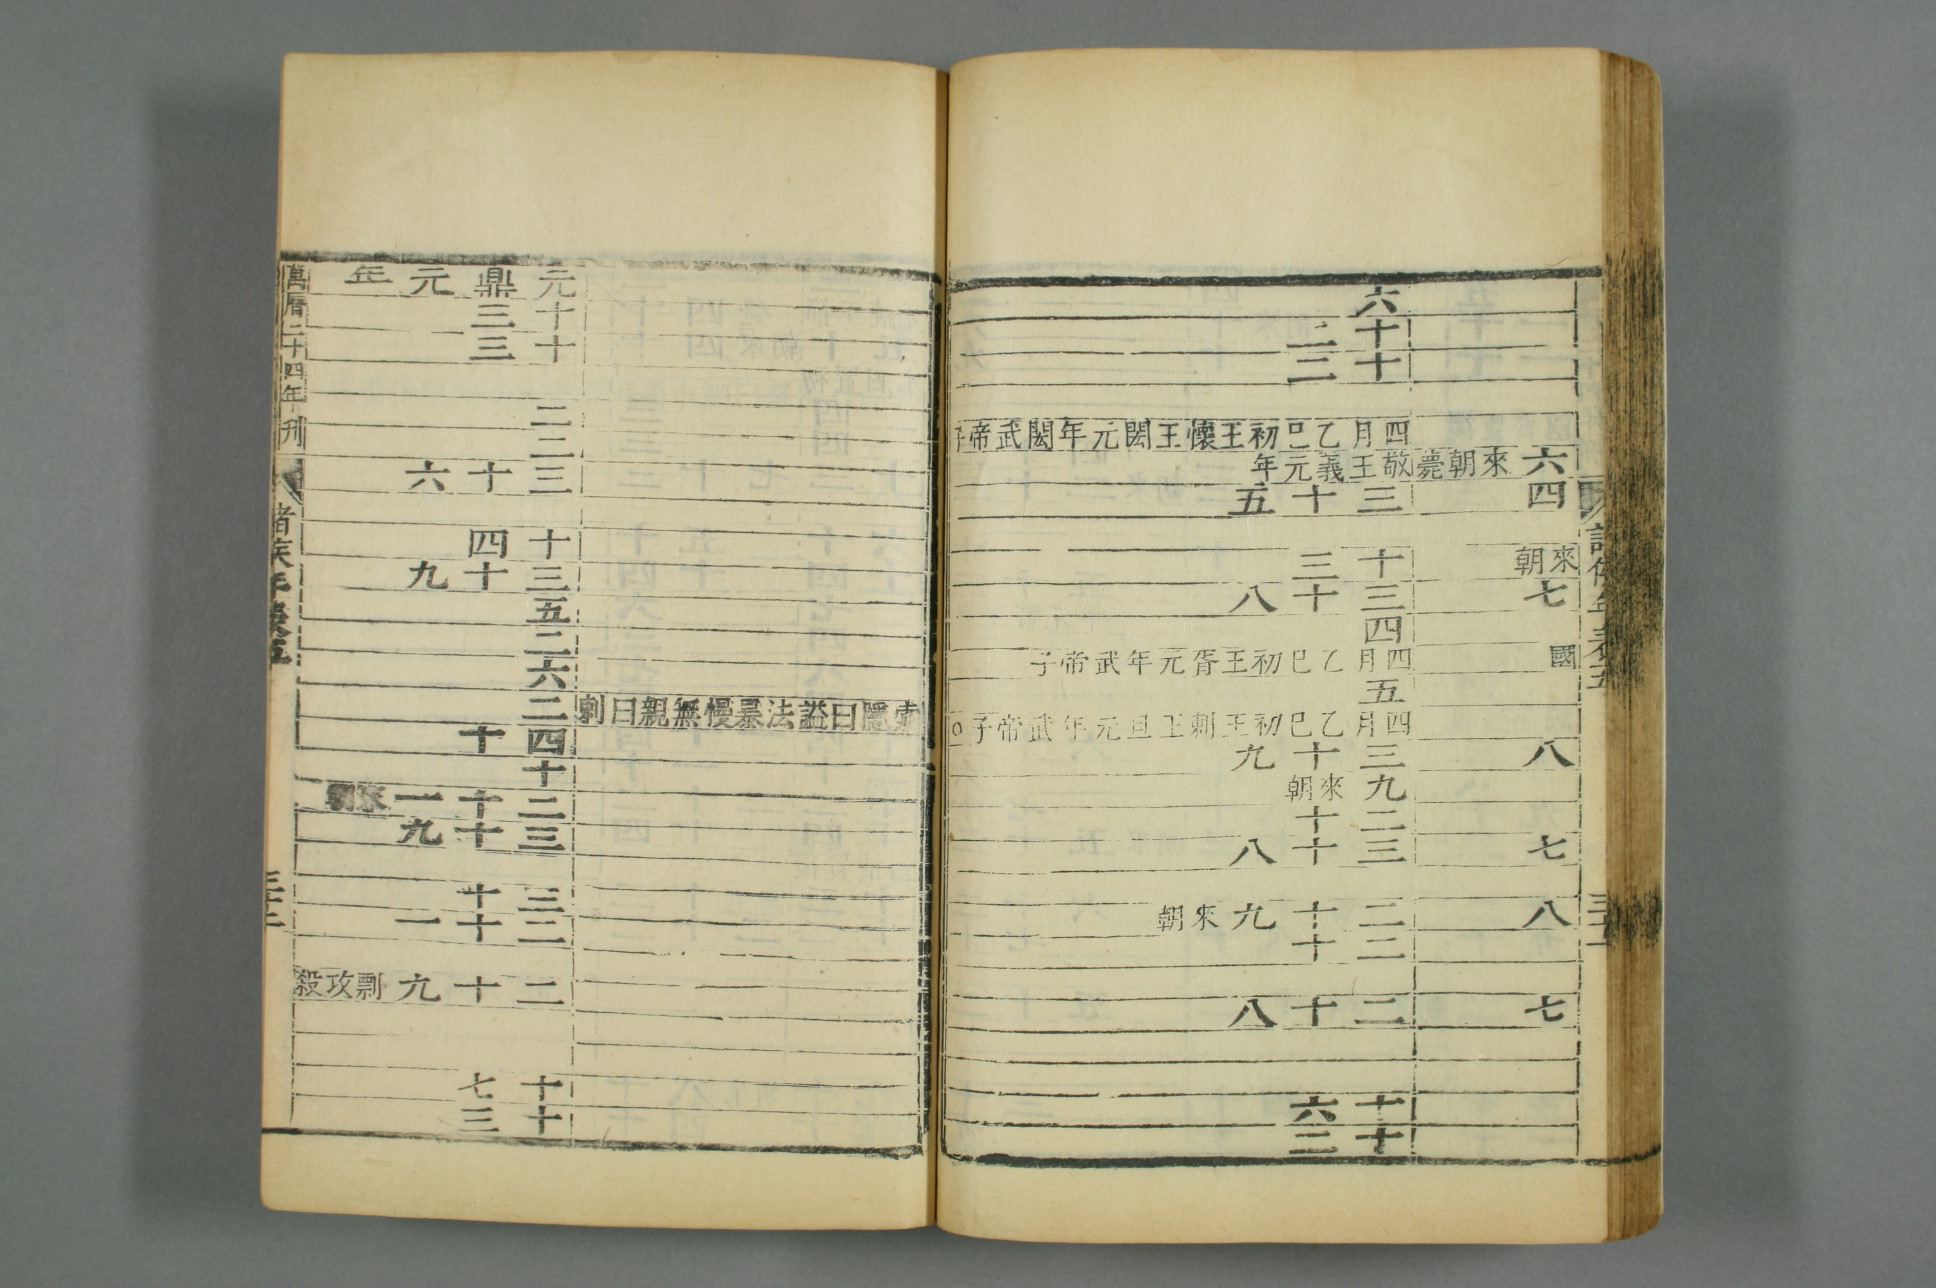 諸侯年表五
六來朝薨
四
來朝
七
國
八
七
八
七
六
十二
十三
四月乙巳初王懷王閎元年武帝子
敬王義元年
三十五
十三
三十八
四
四月乙巳初王胥元年武帝子
五
四月乙巳初王剌王旦元年武帝子○
三十九
九來朝
二十
三十八
二十九來朝
二十
二十八
十六
十二
索隱曰謚法暴慢無親曰剌
元鼎元年
十三
十三
二
二
三十六
十四
三十九
五
二
六
二
四十
十
二十一來朝
三十九
三十
二十一
二十九剽攻殺
十七
十三
萬曆二十四年刊
諸侯年表五
三十二